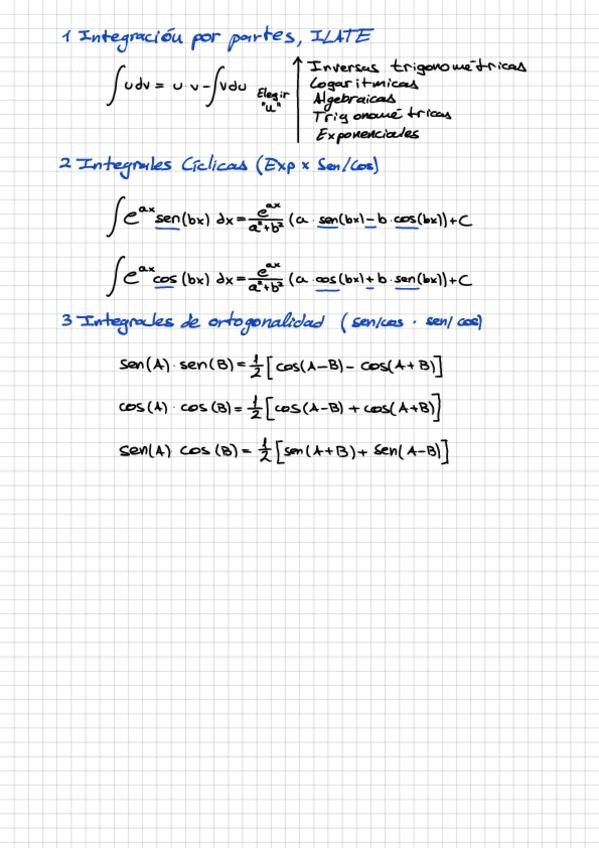 1 Integración por partes, ILATE
∫udv = u v - ∫vdu Elegir "u"
Inversas trigonométricas
Logaritmicas
Algebraicas
Trigonométricas
Exponenciales
2 Integrales Cíclicas (Exp x Sen/Cos)
∫e^ax sen(bx) dx = e^ax/a²+b² (a · sen(bx) - b · cos(bx)) + C
∫e^ax cos(bx) dx = e^ax/a²+b² (a · cos(bx) + b · sen(bx)) + C
3 Integrales de ortogonalidad (sen/cos · sen/cos)
sen(A) · sen(B) = 1/2 [cos(A-B) - cos(A+B)]
cos(A) · cos(B) = 1/2 [cos(A-B) + cos(A+B)]
sen(A) cos(B) = 1/2 [sen(A+B) + sen(A-B)]